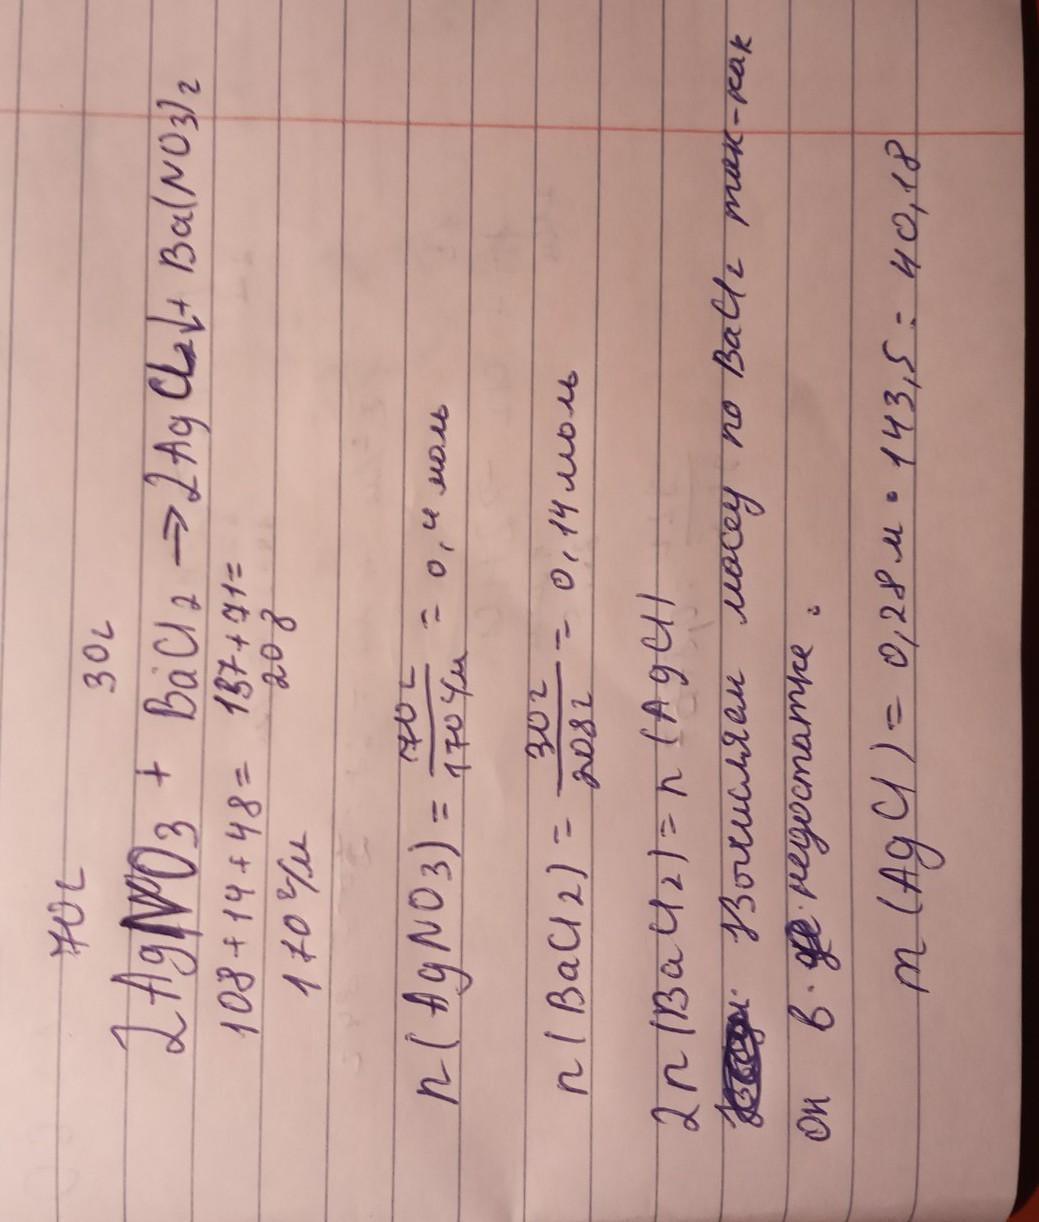 70г 30г
2AgNO3 + BaCl2 → 2AgCl↓ + Ba(NO3)2
108+14+48= 137+71=
170 г/м 208
n(AgNO3) = 70г/170г/м = 0,4 моль
n(BaCl2) = 30г/208г = 0,14 моль
2n(BaCl2) = n(AgCl)
Вычисляем массу по BaCl2 так-как
он в недостатке.
m(AgCl) = 0,28м • 143,5 = 40,18